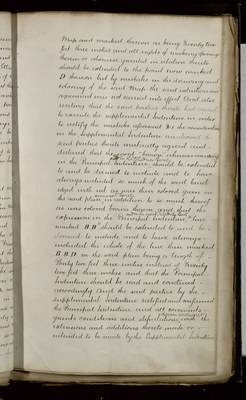 Map and marked thereon as being Twenty two
feet three inches and all rights of making openings
therein or otherwise granted in relation thereto
should be extended to the point now marked
D thereon but by mistake in the drawing and
coloring of the said Map the said intention and
agreement was not carried into effect And also
reciting that the said parties thereto had agreed
to execute the supplemental Indenture in order
to rectify the mistake aforesaid It is the consideration
in the Supplemental Indenture mentioned the
said parties thereto mutually agreed and
declared that the said
in the Principal Indenture should be extended
to and be deemed to include and to have
always included so much of the said land
edged with red as was then colored green in
the said plan in addition to so much thereof
as was colored brown thereon and that the
expression in the Principal Indenture "line
marked B.B" should be extended to and be
deemed to include and to have always
included the whole of the line then marked
B.B.D on the said plan being a length of
Forty two feet three inches instead of Twenty
two feet three inches and that the Principal
Indenture should be read and construed
accordingly And the said parties by the
Supplemental Indenture ratified and confirmed
the Principal Indenture and all covenants
grants conditions and stipulations with the
extensions and additions thereto made or
intended to be made by the Supplemental Indenture